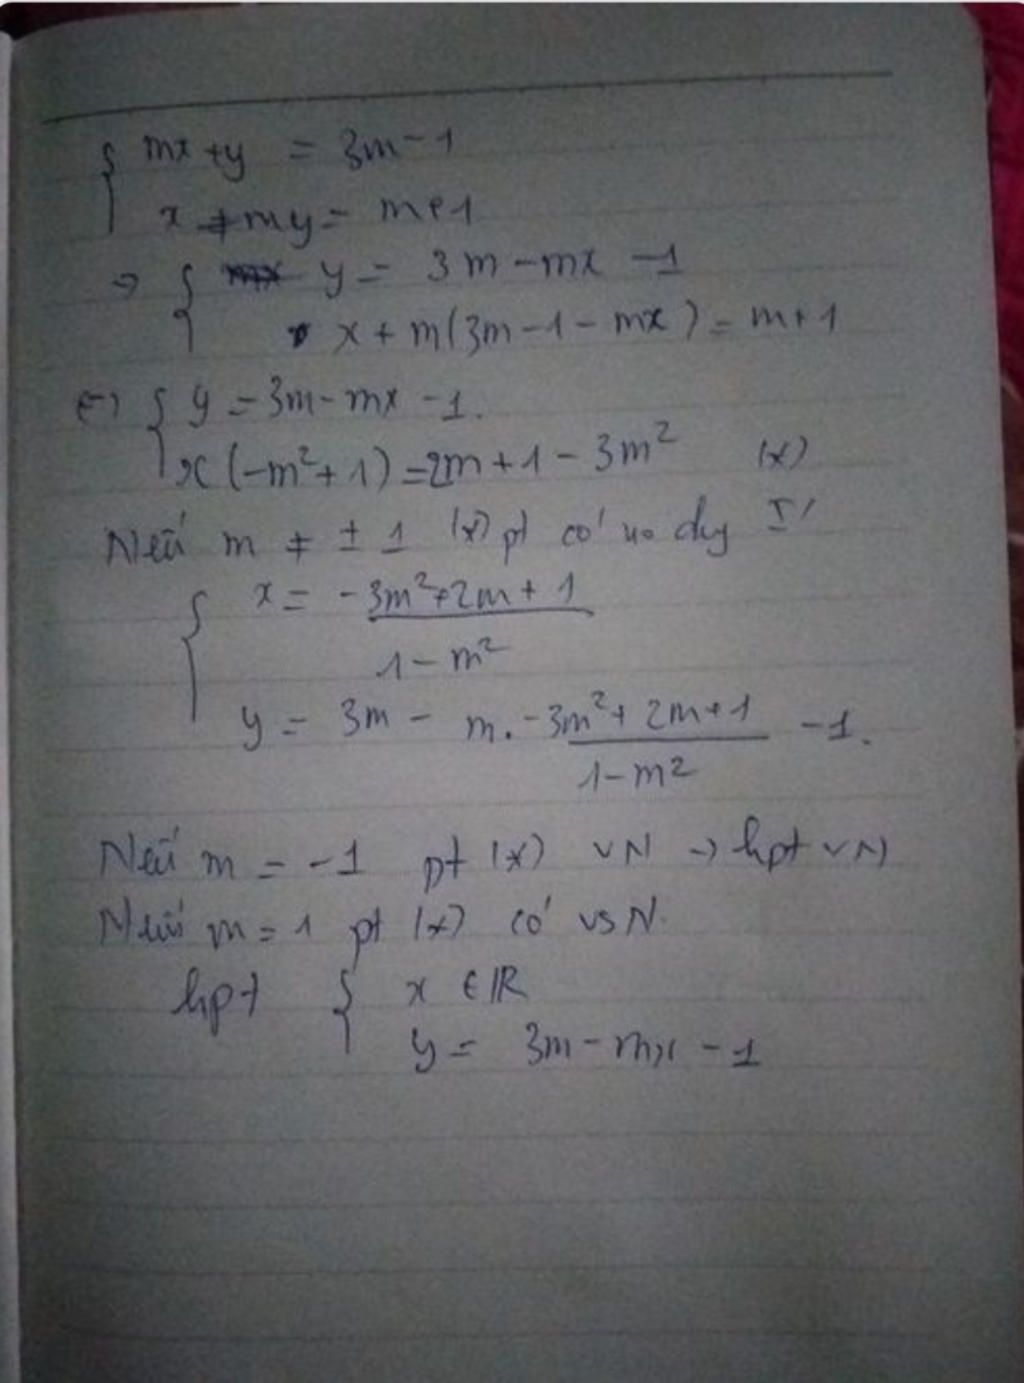 { mx + y = 3m - 1
x + my = m + 1
→ { y = 3m - mx - 1
x + m(3m - 1 - mx) = m + 1
⇔ { y = 3m - mx - 1.
x(-m² + 1) = 2m + 1 - 3m² (*)
Nếu m ≠ ± 1 (*) pt có no duy I'
{ x = -3m² + 2m + 1 / 1 - m²
y = 3m - m. -3m² + 2m + 1 / 1 - m² - 1.
Nếu m = -1 pt (*) VN → hpt VN
Nếu m = 1 pt (*) có VSN.
hpt { x ∈ ℝ
y = 3m - mx - 1